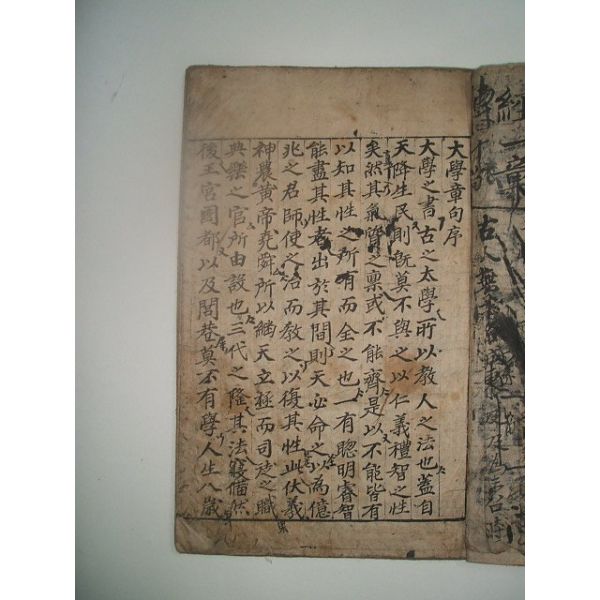 經一章
大學章句序
大學之書古之太學所以教人之法也盖自
天降生民則旣莫不與之以仁義禮智之性
矣然其氣質之稟或不能齊是以不能皆有
以知其性之所有而全之也一有聡明睿智
能盡其性者出於其間則天必命之以為億
兆之君師使之治而教之以復其性此伏羲
神農黃帝堯舜所以継天立極而司徒之職
典樂之官所由設也三代之隆其法寖備然
後王宮國都以及閭巷莫不有學人生八歲